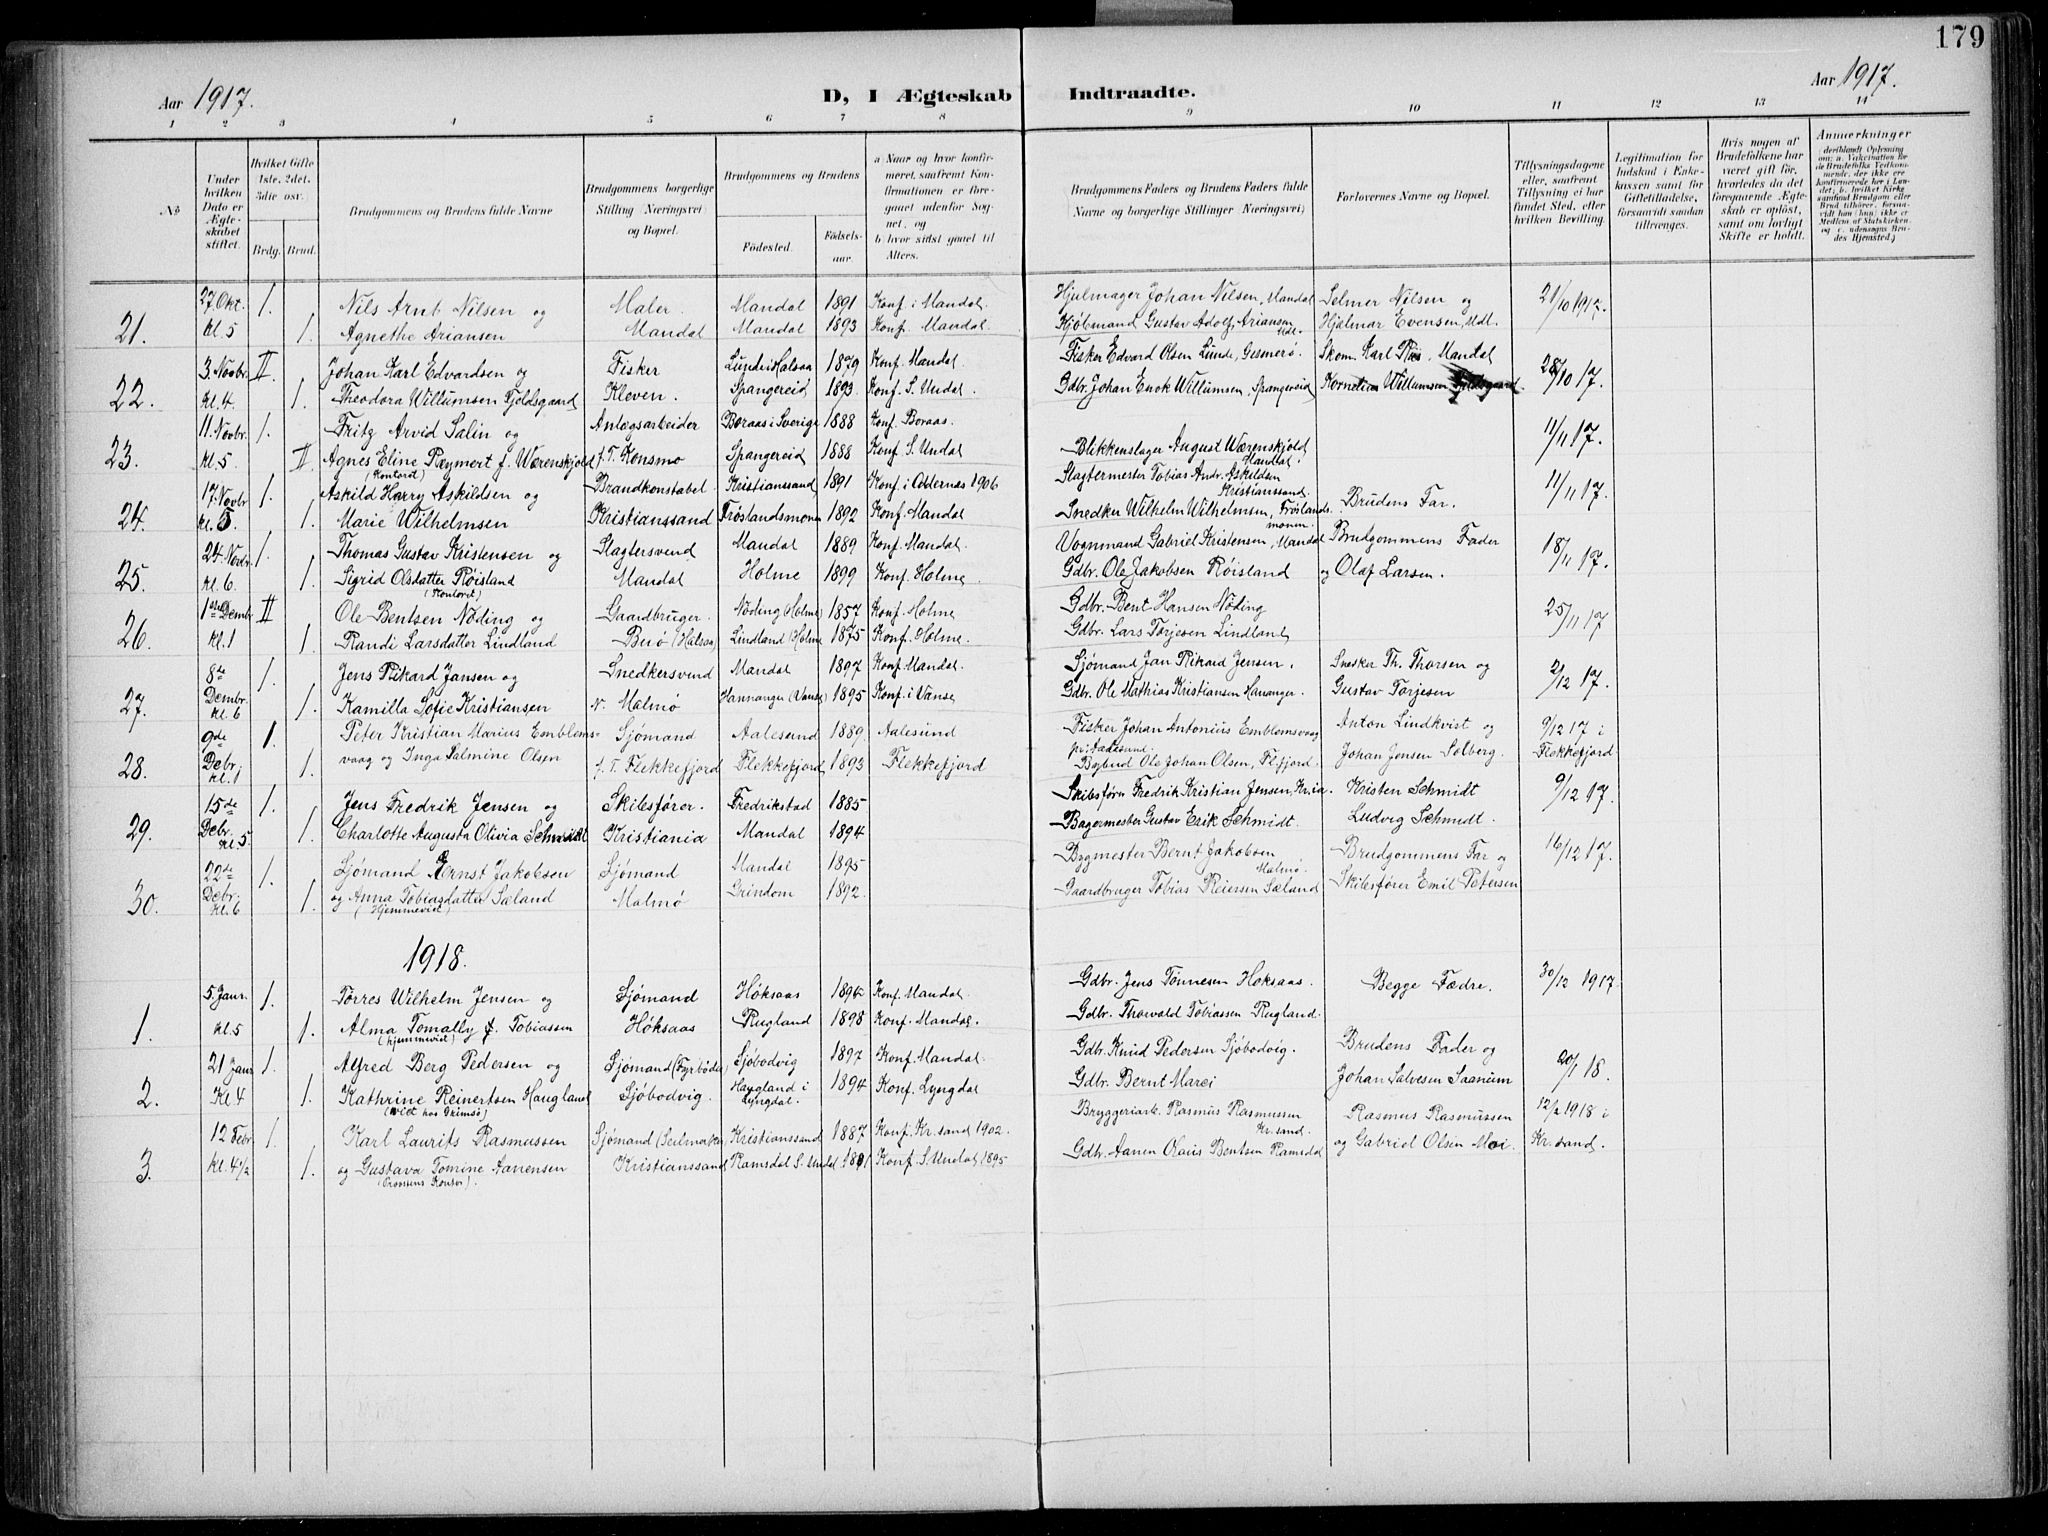 179
Aar 1917. D, I Ægteskab Indtraadte. Aar 1917.
1 2 3 4 5 6 7 8 9 10 11 12 13 14
No
Under hvilken Dato er Ægteskabet stiftet.
Hvilket Gifte 1ste, 2det, 3die osv.
Brdg. Brud.
Brudgommens og Brudens fulde Navne
Brudgommens borgerlige Stilling (Næringsvei) og Bopæl.
Brudgommens og Brudens
Fødested. Fødselsaar.
a. Naar og hvor konfirmeret, saafremt Konfirmationen er foregaaet udenfor Sognet, og
b. hvor sidst gaaet til Alters.
Brudgommens Faders og Brudens Faders fulde Navne og borgerlige Stillinger (Næringsvei)
Forlovernes Navne og Bopæl.
Tillysningsdagene eller, saafremt Tillysning ei har fundet Sted, efter hvilken Bevilling.
Legitimation for Indskud i Enkekassen samt for Giftetilladelse, forsaavidt saadan tiltrænges.
Hvis nogen af Brudefolkene har været gift før, hvorledes da det foregaaende Ægteskab er opløst, samt om lovligt Skifte er holdt.
Anmerkninger
21. 27. Okt. 1. Nils Arnt Nilsen og Maler Mandal 1891 Konf. i Mandal. Hjulmager Johan Nilsen, Mandal Selmer Nilsen og 21/10 1917.
kl. 5 1. Agnethe Ariansen Mandal Mandal 1893 Konf. Mandal. Kjøbmand Gustav Adolf Ariansen Mdl. Hjalmar Evensen, Mdl.
22. 3. Novbr. II. Johan Karl Edvardsen og Fisker Lunde i Halsaa 1879 Konf. Mandal. Fisker Edvard Olsen Lunde, Gesmerø. Skom. Karl Riis, Mandal 28/10 17.
kl. 4. 1. Theodora Willumsen Fjeldsgaard Kleven. Spangereid 1893 Konf. S. Undal. Gdbr. Johan Enok Willumsen, Spangereid Kornelius Willumsen
23. 11. Novbr. 1. Fritz Arvid Salin og Anlægsarbeider Boraas i Sverige 1888 Konf. Boraas. 11/11 17.
kl. 5 II Agnes Eline Reymert f. Wærenskjold f. T. Konsmo Spangereid 1888 Konf. S. Undal Blikkenslager August Wærenskjold Mandal.
(Kontoret)
24. 17. Novbr. 1. Askild Harry Askildsen og Brandkonstabel Kristianssand 1891 Konf. i Oddernes 1906 Slagtermester Tobias Andr. Askildsen Kristianssand. 11/11 17.
kl. 5. 1. Marie Wilhelmsen Kristianssand Frøslandsmonen 1892 Konf. Mandal Snedker Wilhelm Wilhelmsen, Frøslandsmonen Brudens Far.
25. 24. Novbr. 1. Thomas Gustav Kristensen og Slagtersvend Mandal 1889 Konf. Mandal. Vognmand Gabriel Kristensen, Mandal Brudgommens Fader 18/11 17.
kl. 6. 1. Sigrid Olsdatter Røisland Mandal Holme 1899 Konf. Holme. Gdbr. Ole Jakobsen Røisland og Olaf Larsen.
(Kontoret)
26. 1ste Dembr. II Ole Bentsen Nøding og Gaardbruger. Nøding (Holme) 1857 Konf. Holme Gdbr. Bent Hansen Nøding 25/11 17
kl. 1 1. Randi Larsdatter Lindland Buø (Halsaa) Lindland (Holme) 1875 Konf. Holme. Gdbr. Lars Torjesen Lindland
27. 8de 1. Jens Rikard Jansen og Snedkersvend Mandal 1897 Konf. Mandal. Sjømand Jan Rikard Jensen. Snedker Th. Thorsen og 2/12 17.
Dembr. kl. 6 1. Kamilla Sofie Kristiansen N. Malmø Hannanger (Vanse) 1895 Konf. i Vanse Gdbr. Ole Mathias Kristiansen Hananger. Gustav Torjesen
28. 9de 1. Peter Kristian Marius Emblems- Sjømand Aalesund 1889. Aalesund Fisker Johan Antonius Emblemsvaag pr. Aalesund. Anton Lindkvist og 9/12 17 i
Debr. kl. 1 1. vaag og Inga Salmine Olsen f. T. Flekkefjord Flekkefjord 1893 Flekkefjord Bybud Ole Johan Olsen, Fl.fjord. Johan Jensen Solberg. Flekkefjord
29. 15de 1. Jens Fredrik Jensen og Skibsfører. Fredrikstad 1885 Skibsfører Fredrik Kristian Jensen, Kr.ia. Kristen Schmidt 9/12 17.
Debr. kl. 5. 1. Charlotte Augusta Olivia Schmidt Kristiania Mandal 1894 Bagermester Gustav Erik Schmidt. Ludvig Schmidt.
30. 22de 1. Sjømand Ernst Jakobsen Sjømand Mandal 1895 Bygmester Bernt Jakobsen Malmø. Brudgommens Far og 16/12 17.
Debr. kl. 6 1. og Anna Tobiasdatter Sæland Malmø Grindom 1892. Gaardbruger Tobias Reiersen Sæland Skibsfører Emil Petersen
(Hjemmeviet)
1918.
1. 5. Janr. 1. Tørres Wilhelm Jensen og Sjømand Høksaas 1894 Konf. Mandal. Gdbr. Jens Tønnesen Høksaas. Begge Fædre. 30/12 1917.
kl. 5 1. Alma Tomally f. Tobiassen Høksaas Rugland 1898 Konf. Mandal. Gdbr. Thorvald Tobiassen Rugland.
(hjemmeviet)
2. 21 Janr. 1. Alfred Berg Pedersen og Sjømand (Fyrbøder) Sjøbodvig 1897 Konf. Mandal. Gdbr. Knud Pedersen Sjøbodvig. Brudens Fader og 20/1 18.
Kl. 4 1. Kathrine Reinertsen Haugland Sjøbodvig. Haugland i Lyngdal. 1894 Konf. Lyngdal Gdbr. Bernt Johan Salvesen Saanum
(viet hos Grimsø)
3. 12 Febr. 1. Karl Laurits Rasmussen Sjømand (Seilmaker) Kristianssand 1887 Konf. Kr.sand 1902. Bryggeriarb. Rasmus Rasmussen Kr.sand. Rasmus Rasmussen 12/2 1918 i
kl. 4 1/2 1. og Gustava Tomine Aanensen Kristianssand Ramsdal S. Undal 1881 Konf. S. Undal 1895 Gdbr. Aanen Olaus Bentsen Ramsdal og Gabriel Olsen Moi. Kr.sand.